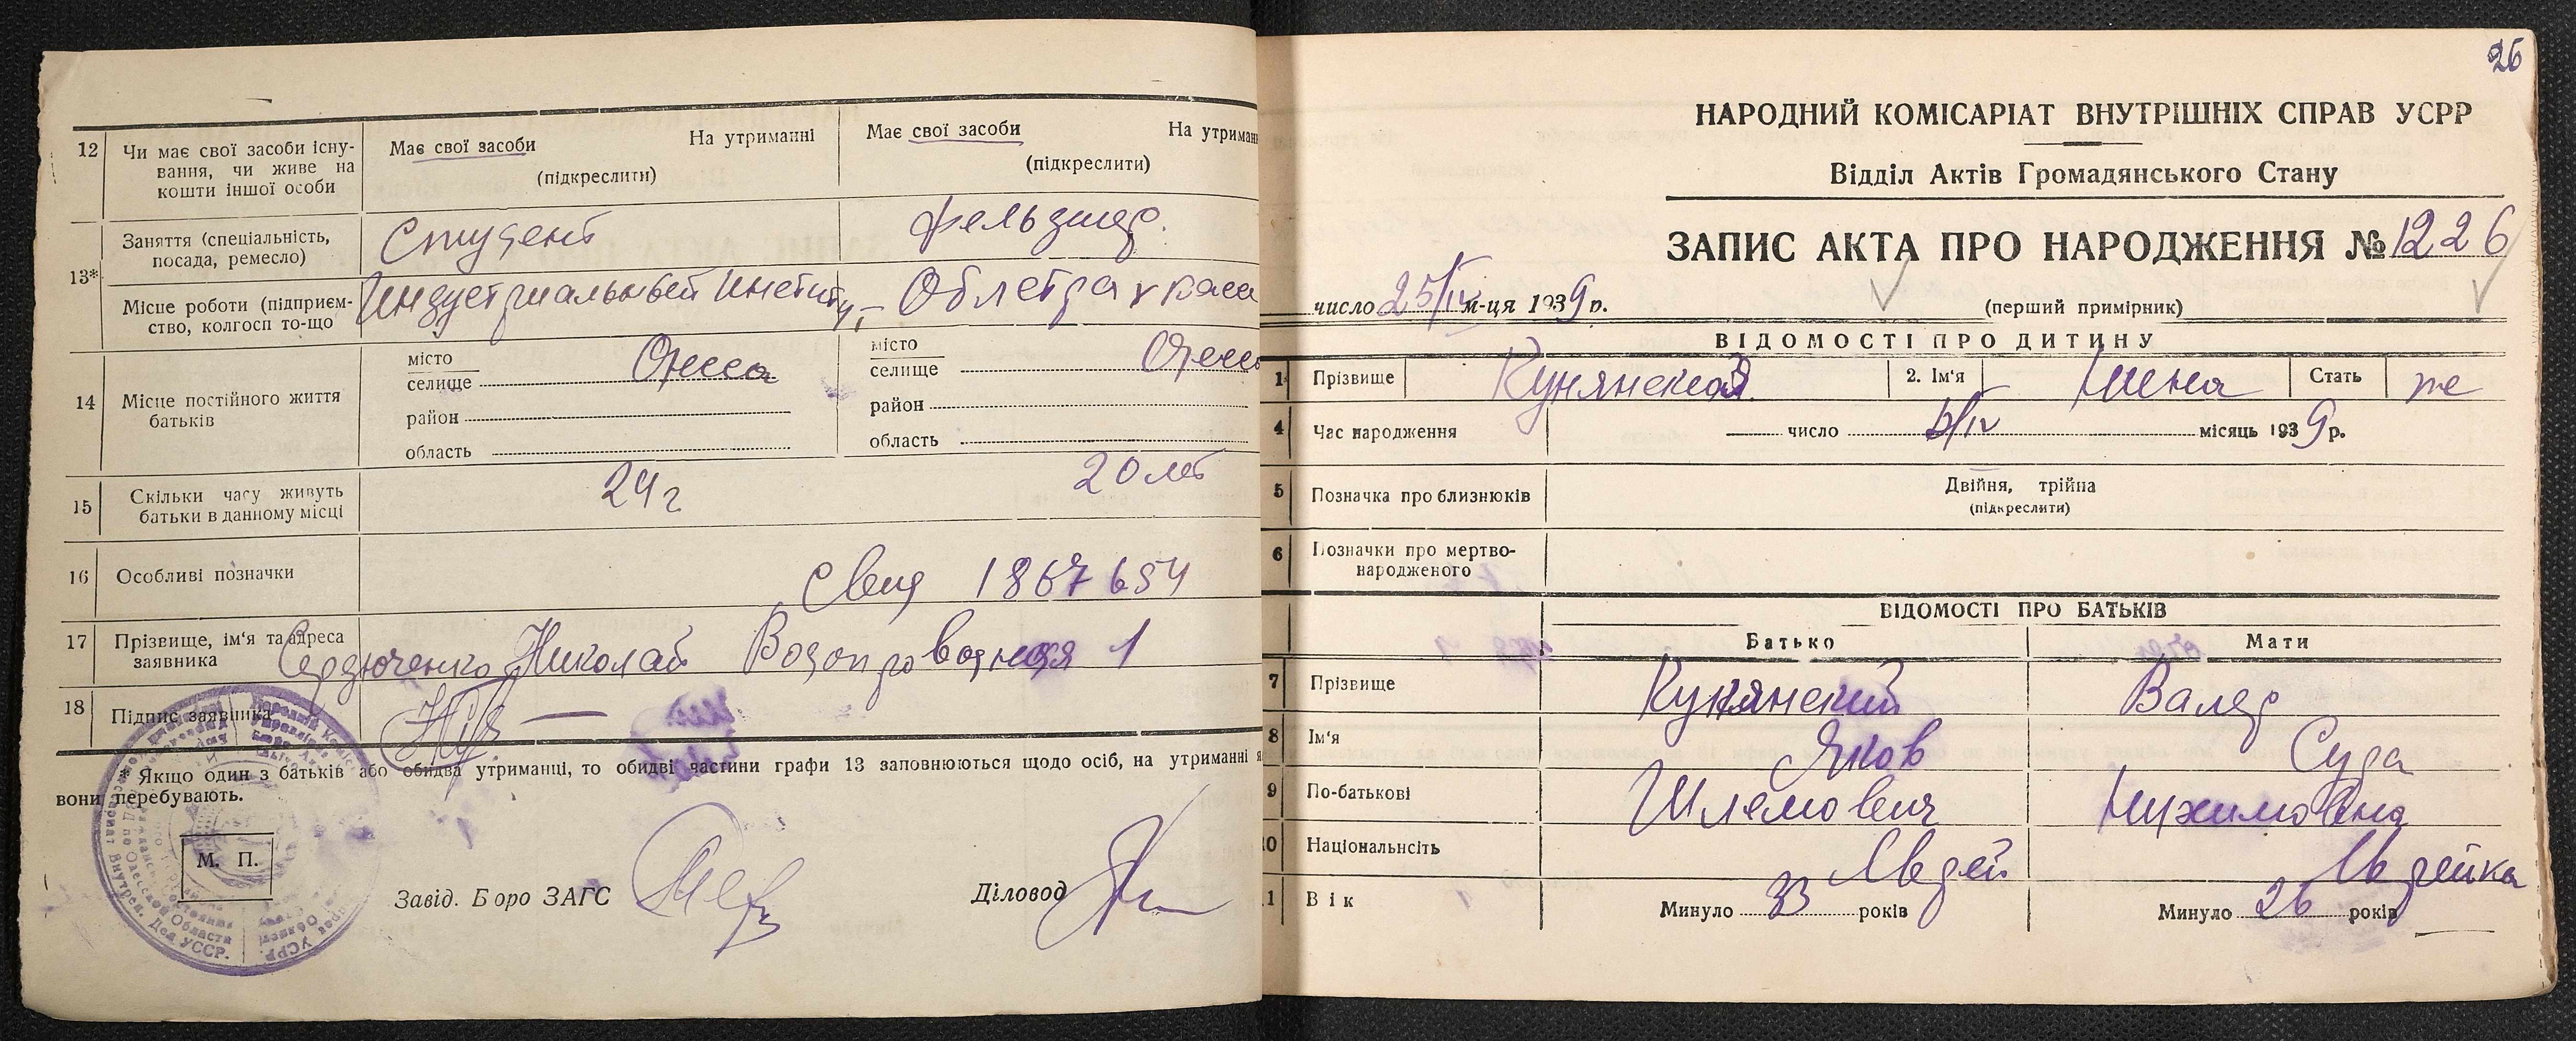 12
Чи має свої засоби існу-
вання, чи живе на
кошти іншої особи
Має свої засоби
На утриманні
(підкреслити)
Має свої засоби
На утриман
(підкреслити)
13*
Заняття (спеціальність,
посада, ремесло)
Студент
фельдшер.
Місце роботи (підприєм-
ство, колгосп то-що
Индустриальный Инстит
Облстрах касса
14
Місце постійного життя
батьків
місто
селище
Одесса
район
область
місто
селище
Одесс
район
область
15
Скільки часу живуть
батьки в данному місці
24 г
20 лет
16
Особливі позначки
Свид 1867654
17
Прізвище, ім'я та адреса
заявника
Сердюченко Николай Водопроводная 1
18
Підпис заявника
* Якщо один з батьків або обидва утриманці, то обидві частини графи 13 заповнюються щодо осіб, на утриманні я
вони перебувають.
М. П.
Завід. Бюро ЗАГС
Діловод
26
НАРОДНИЙ КОМІСАРІАТ ВНУТРІШНІХ СПРАВ УСРР
Відділ Актів Громадянського Стану
ЗАПИС АКТА ПРО НАРОДЖЕННЯ № 1226
число 25/IV м-ця 1939 р.
(перший примірник)
ВІДОМОСТІ ПРО ДИТИНУ
1
Прізвище
Кунянская
2. Ім'я
Инна
Стать
же
4
Час народження
число
/IV
місяць 1939 р.
5
Позначка про близнюків
Двійня, трійна
(підкреслити)
6
Позначки про мертво-
народженого
ВІДОМОСТІ ПРО БАТЬКІВ
Батько
Мати
7
Прізвище
Кунянский
Валер
8
Ім'я
Яков
Сура
9
По-батькові
Шлемович
10
Національність
Еврей
Еврейка
11
Вік
Минуло 33 років
Минуло 26 років